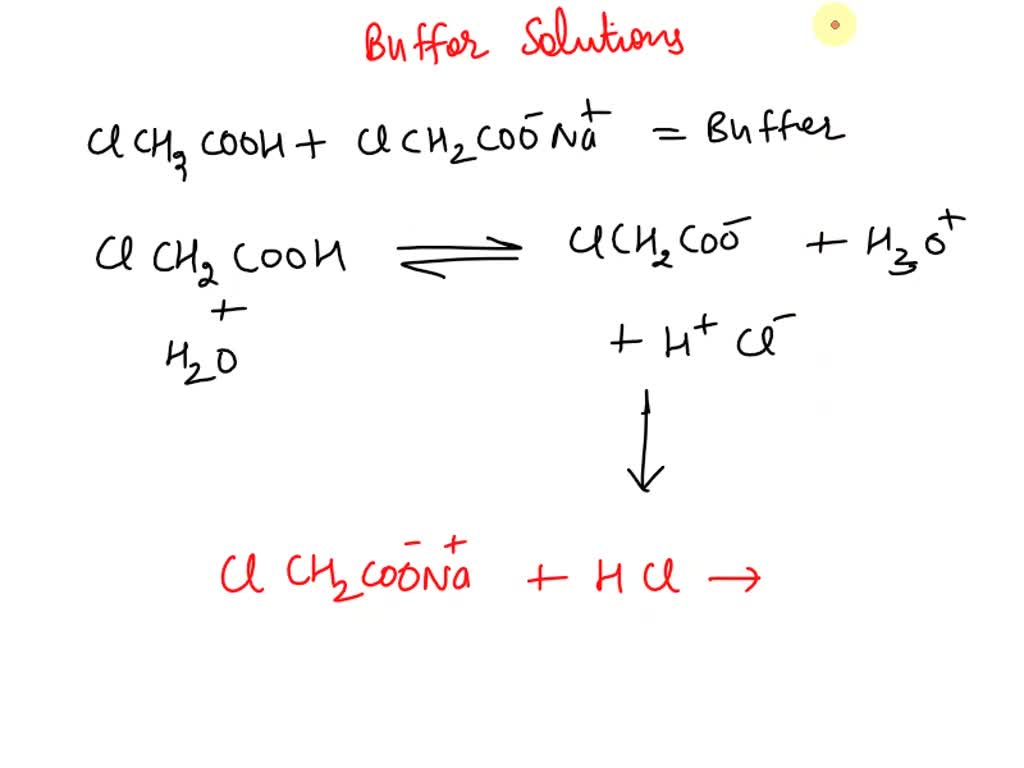 Buffer Solutions
ClCH�3COOH + ClCH₂COO⁻Na⁺ = Buffer
ClCH₂COOH ⇌ ClCH₂COO⁻ + H₃O⁺
+
H₂O
+ H⁺ Cl⁻
↓
ClCH₂COO⁻Na⁺ + HCl →